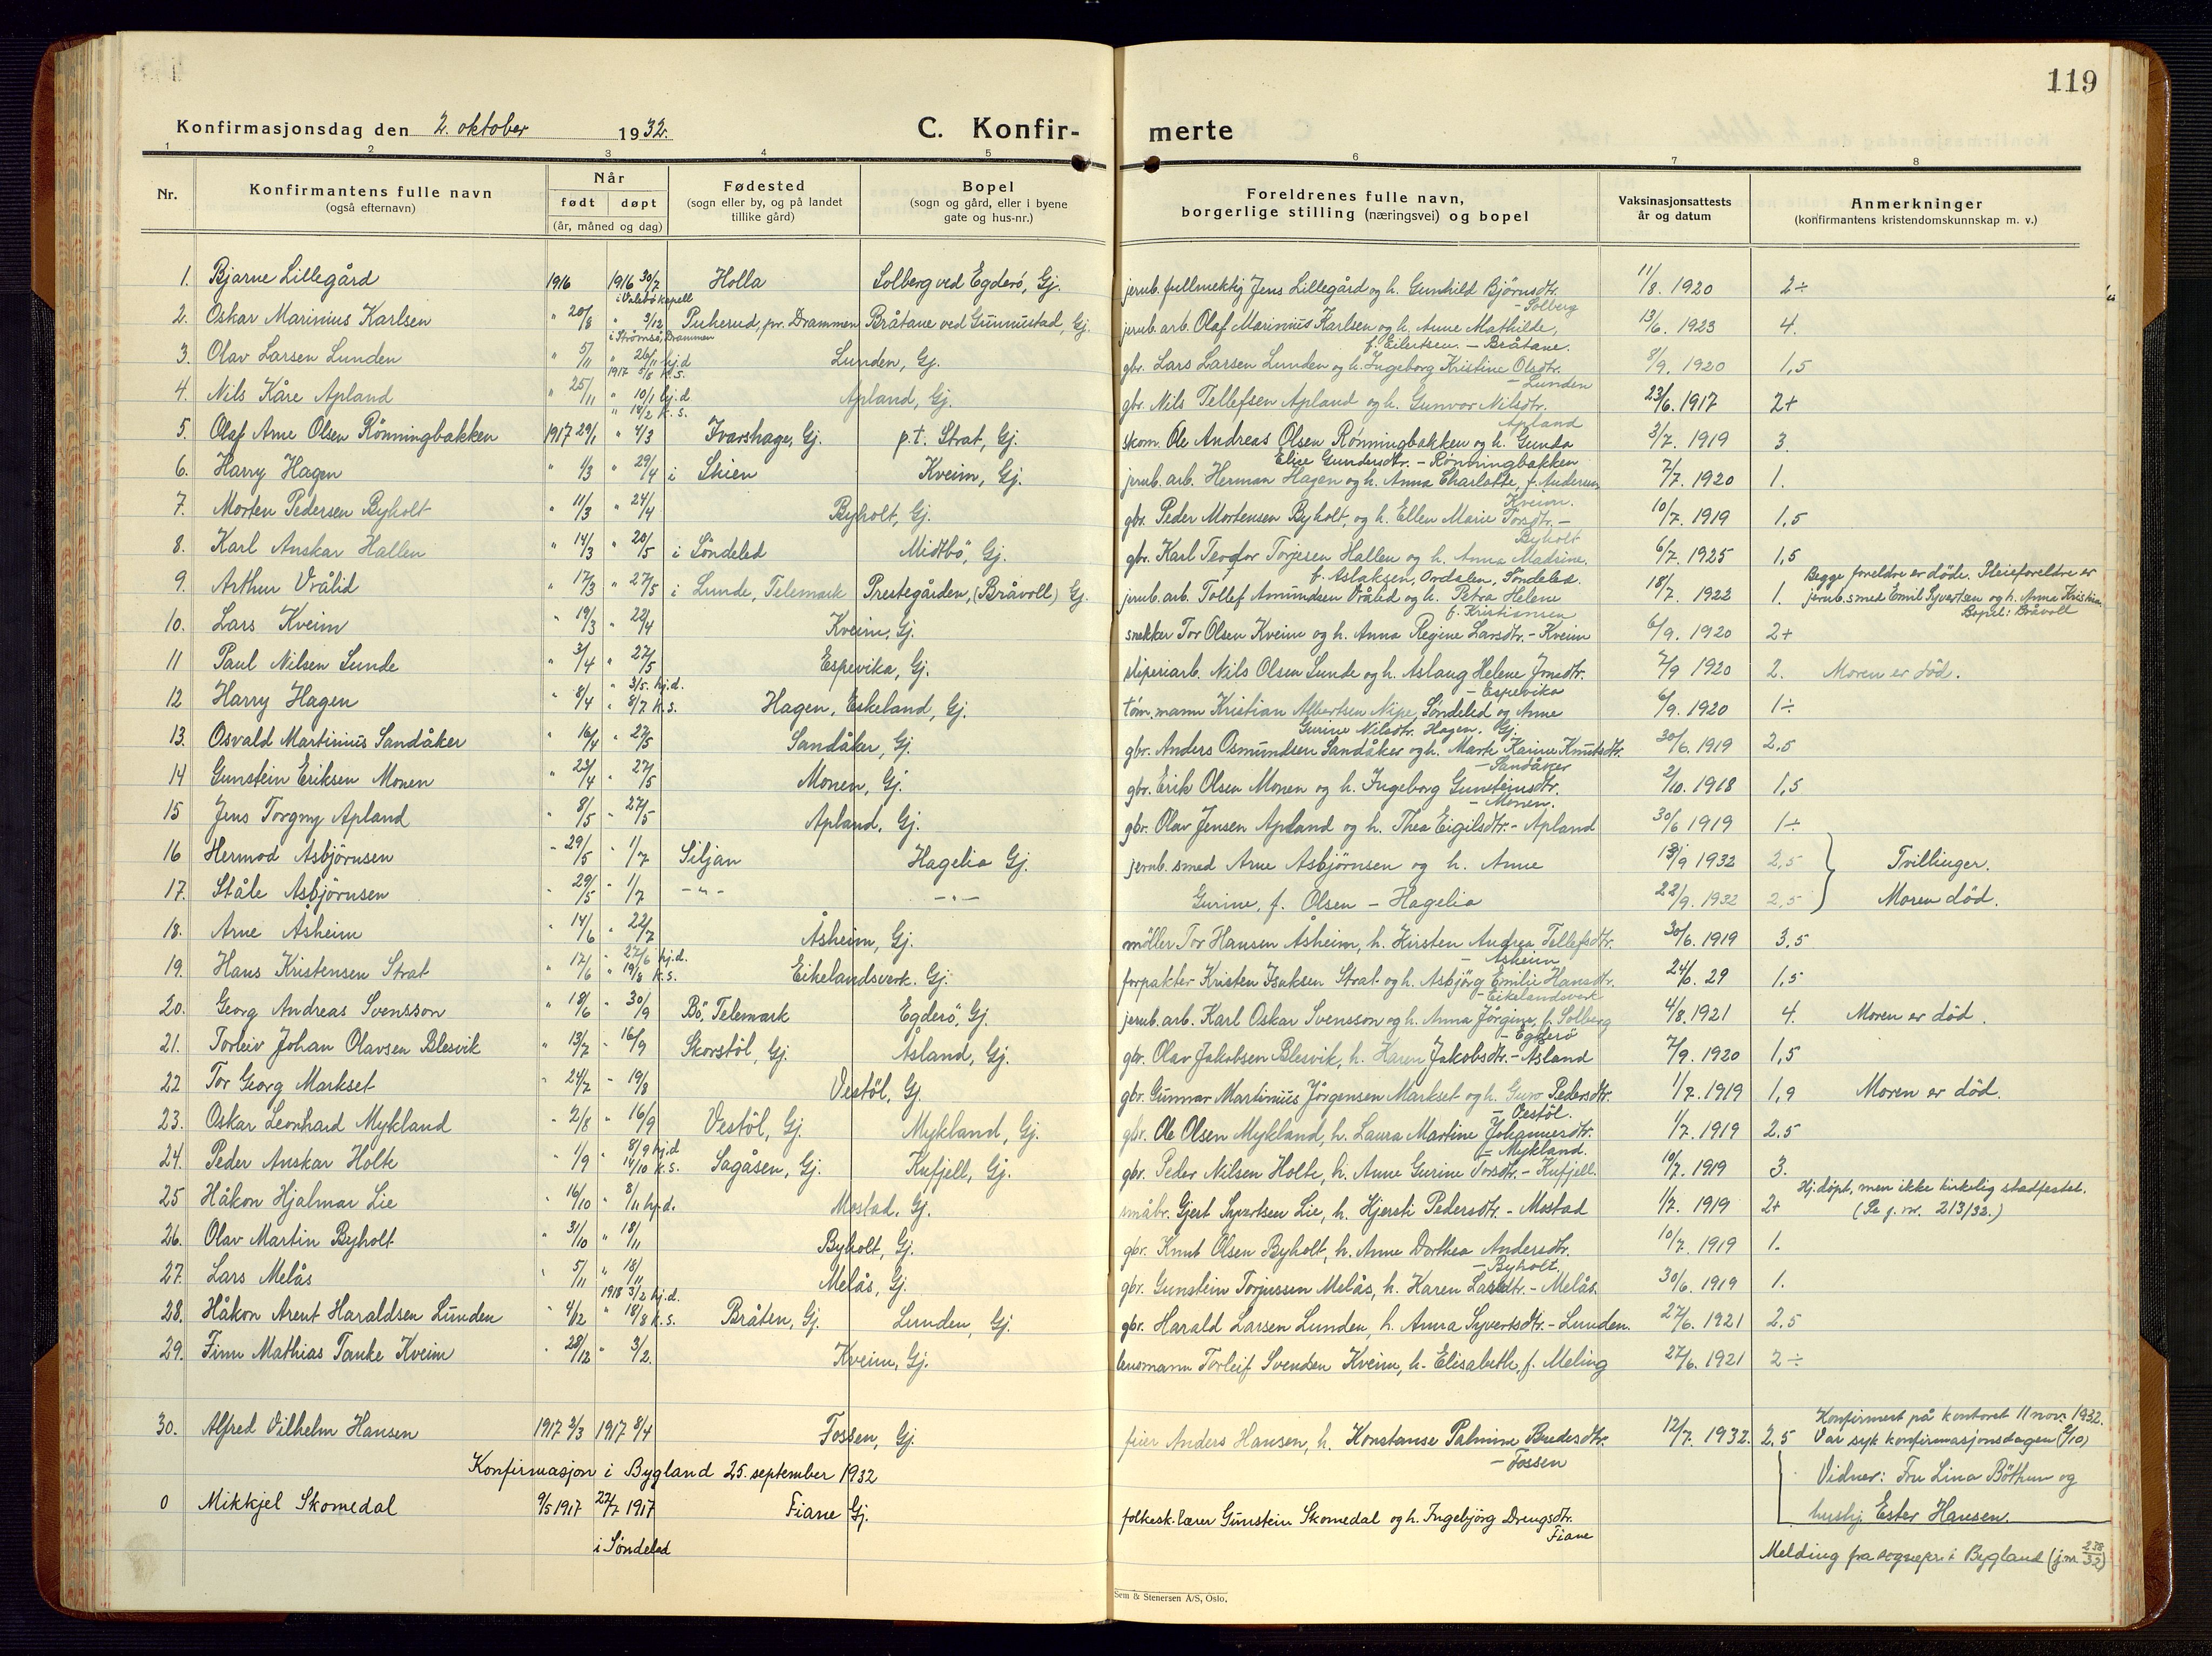 119
Konfirmasjonsdag den 2. oktober 1932. C. Konfirmerte
1 2 3 4 5 6 7 8
Nr. Konfirmantens fulle navn (også efternavn) Når født døpt (år, måned og dag) Fødested (sogn eller by, og på landet tillike gård) Bopel (sogn og gård, eller i byene gate og hus-nr.) Foreldrenes fulle navn, borgerlige stilling (næringsvei) og bopel Vaksinasjonsattests år og datum Anmerkninger (konfirmantens kristendomskunnskap m. v.)
1. Bjarne Lillegård 1916 1916 30/7 i Valebö kapell Holla Solberg ved Egderö, Gj. jernb. fullmektig Jens Lillegård og h. Gunhild Björnsdtr. - Solberg 11/8. 1920 2÷
2. Oskar Marinius Karlsen " 20/8 " 3/12 i Strömsö, Drammen Puherud, pr. Drammen Bråtane ved Gunnustad, Gj. jernb. arb. Olaf Marinius Karlsen og h. Anne Mathilde, f. Eilertsen. - Bråtane. 13/6. 1923 4.
3. Olav Larsen Lunden " 5/11 " 26/11 hj.d 1917 5/8 k.s. Lunden, Gj. gbr. Lars Larsen Lunden og h. Ingeborg Kristine Olsdtr. - Lunden 8/9. 1920 1,5
4. Nils Kåre Apland " 25/11 " 10/1 hj.d " 14/2 k.s. Apland, Gj. gbr. Nils Tellefsen Apland og h. Gunvor Nilsdtr. Apland 23/6. 1917 2+
5. Olaf Arne Olsen Rönningbakken 1917 29/1 " 4/3 Ivarshage, Gj. p.t. Strat, Gj. skom. Ole Andreas Olsen Rönningbakken og h. Gunda Elise Gundersdtr. - Rönningbakken 3/7. 1919 3.
6. Harry Hagen " 1/3 " 29/4 i Skien Kveim, Gj. jernb. arb. Herman Hagen og h. Anna Charlotte, f. Andersen Kveim. 7/7. 1920 1.
7. Morten Pedersen Byholt " 11/3 " 24/4 Byholt, Gj. gbr. Peder Mortensen Byholt, og h. Ellen Marie Torsdtr. - Byholt 10/7. 1919 1,5
8. Karl Anskar Hallen " 14/3 " 20/5 i Söndeled Midtbö, Gj. gbr. Karl Teodor Torjesen Hallen og h. Anna Madsine. f. Aslaksen, Ordalen, Söndeled. 6/7. 1925 1,5
9. Arthur Vrålid " 17/3 " 27/5 i Lunde, Telemark Prestegården, (Bråvoll) Gj. jernb. arb. Tollef Amundsen Vrålid og h. Petra Helene f. Kristiansen 18/7. 1922 1. Begge foreldre er döde. Pleieforeldre er jernb. smed Emil Syvertsen og h. Anna Kristina Bopel: Bråvoll
10. Lars Kveim " 19/3 " 22/4 Kveim, Gj. snekker Tor Olsen Kveim og h. Anna Regine Larsdtr. - Kveim 6/9. 1920 2+
11 Paul Nilsen Lunde " 3/4 " 27/5 Espevika, Gj. sliperiarb. Nils Olsen Lunde og h. Aslaug Helene Jonsdtr. - Espevika 7/9 1920 2. Moren er död.
12 Harry Hagen " 8/4 " 3/5. hj.d. " 8/7 k.s. Hagen, Eskeland, Gj. töm.mann Kristian Albertsen Nipe, Söndeled og Anne Gurine Nilsdtr. Hagen. Gj. 6/9. 1920 1÷
13. Osvald Martinius Sandåker " 16/4 " 27/5 Sandåker, Gj. gbr. Anders Osmundsen Sandåker og h. Marte Karine Knutsdtr. - Sandåker 30/6. 1919 2,5
14 Gunstein Eriksen Monen " 23/4 " 27/5 Monen, Gj. gbr. Erik Olsen Monen og h. Ingeborg Gunsteinsdtr. - Monen. 2/10. 1918 1,5
15 Jens Torgny Apland " 8/5 - 27/5 Apland, Gj. gbr. Olav Jensen Apland og h. Thea Eigilsdtr. - Apland 30/6 1919 1÷
16 Hermod Asbjörnsen - 29/5 - 1/7 Siljan Hagelia Gj. jernb. smed Arne Asbjörnsen og h. Anne 13/9 1932 2,5 Tvillinger.
17. Ståle Asbjörnsen - 29/5 - 1/7 - " - - " - Gurine, f. Olsen - Hagelia 22/9. 1932 2,5 Moren död.
18. Arne Åsheim " 14/6 - 22/7 Åsheim, Gj. möller Tor Hansen Åsheim, h. Kirsten Andrea Tellefsdtr. - Åsheim 30/6. 1919 3,5
19. Hans Kristensen Strat " 17/6 - 27/6 hj.d. " 19/8 k.s. Eikelandsverk. Gj. forpakter Kristen Isaksen Strat og h. Asbjörg Emilie Hansdtr. - Eikelandsverk 24/6. 29 1,5
20. Georg Andreas Svensson " 18/6 - 30/9 Bö, Telemark Egderö, Gj. jernb. arb. Karl Oskar Svensson og h. Anna Jörgine, f. Solberg - Egderö 4/8. 1921 4. Moren er död.
21. Torleiv Johan Olavsen Blesvik " 13/7 - 16/9 Skorstöl, Gj. Åsland, Gj. gbr. Olav Jakobsen Blesvik, h. Karen Jakobsdtr. - Åsland 7/9. 1920 1,5
22 Tor Georg Markset - 24/7 - 19/8 Vestöl, Gj. gbr. Gunnar Martinius Jörgensen Markset og h. Guro Pedersdtr. - Vestöl. 1/7. 1919 1,9 Moren er död.
23. Oskar Leonhard Mykland - 2/8 " 16/9 Vestöl, Gj. Mykland, Gj. gbr. Ole Olsen Mykland, h. Laura Martine Johannesdtr. - Mykland. 1/7. 1919 2,5
24. Peder Anskar Holte - 1/9 " 8/9 hj.d 14/10 k.s. Sagåsen, Gj. Kufjell, Gj. gbr. Peder Nilsen Holte, h. Anne Gurine Torsdtr. - Kufjell. 10/7. 1919 3.
25 Håkon Hjalmar Lie - 16/10 " 8/11 hj.d. Mostad, Gj. småbr. Gjert Syvertsen Lie, h. Kjersti Pedersdtr. - Mostad 1/7. 1919 2+ Hj.döpt, men ikke kirkelig stadfestet. (Se j.nr. 213/32.)
26. Olav Martin Byholt - 31/10 " 18/11 Byholt, Gj. gbr. Knut Olsen Byholt, h. Anne Dorthea Andersdtr. - Byholt. 10/7. 1919 1.
27. Lars Melås " 5/11 " 18/11 Melås, Gj. gbr. Gunstein Torjussen Melås, h. Karen Larsdtr. - Melås. 30/6. 1919 1.
28. Håkon Arent Haraldsen Lunden - 4/12 1918 3/2 hj.d. " 18/3 k.s. Bråten, Gj. Lunden, Gj. gbr. Harald Larsen Lunden, h. Anna Syvertsdtr. - Lunden. 27/6. 1921 2,5
29. Finn Mathias Tanke Kveim - 28/12 " 3/2. Kveim, Gj. lensmann Torleif Svendsen Kveim, h. Elisabeth, f. Meling 27/6. 1921 2÷
30. Alfred Vilhelm Hansen 1917 2/3 1917 8/4 Fossen, Gj. feier Anders Hansen, h. Konstanse Palmine Bredesdtr. - Fossen 12/7. 1932. 2,5 Konfirmert på kontoret 11 nov. 1932. Var syk konfirmasjonsdagen (2/10)
Konfirmasjon i Bygland 25. september 1932 Vidner: Fru Lina Böthun og hushj. Ester Hansen.
0 Mikkjel Skomedal 9/5 1917 22/7 1917 i Söndeled Fiane Gj. folkesk.lærer Gunstein Skomedal og h. Ingebjörg Drengsdtr. Fiane
Melding fra sognepr. i Bygland (j.nr. 238/32)
Sem & Stenersen A/S, Oslo.